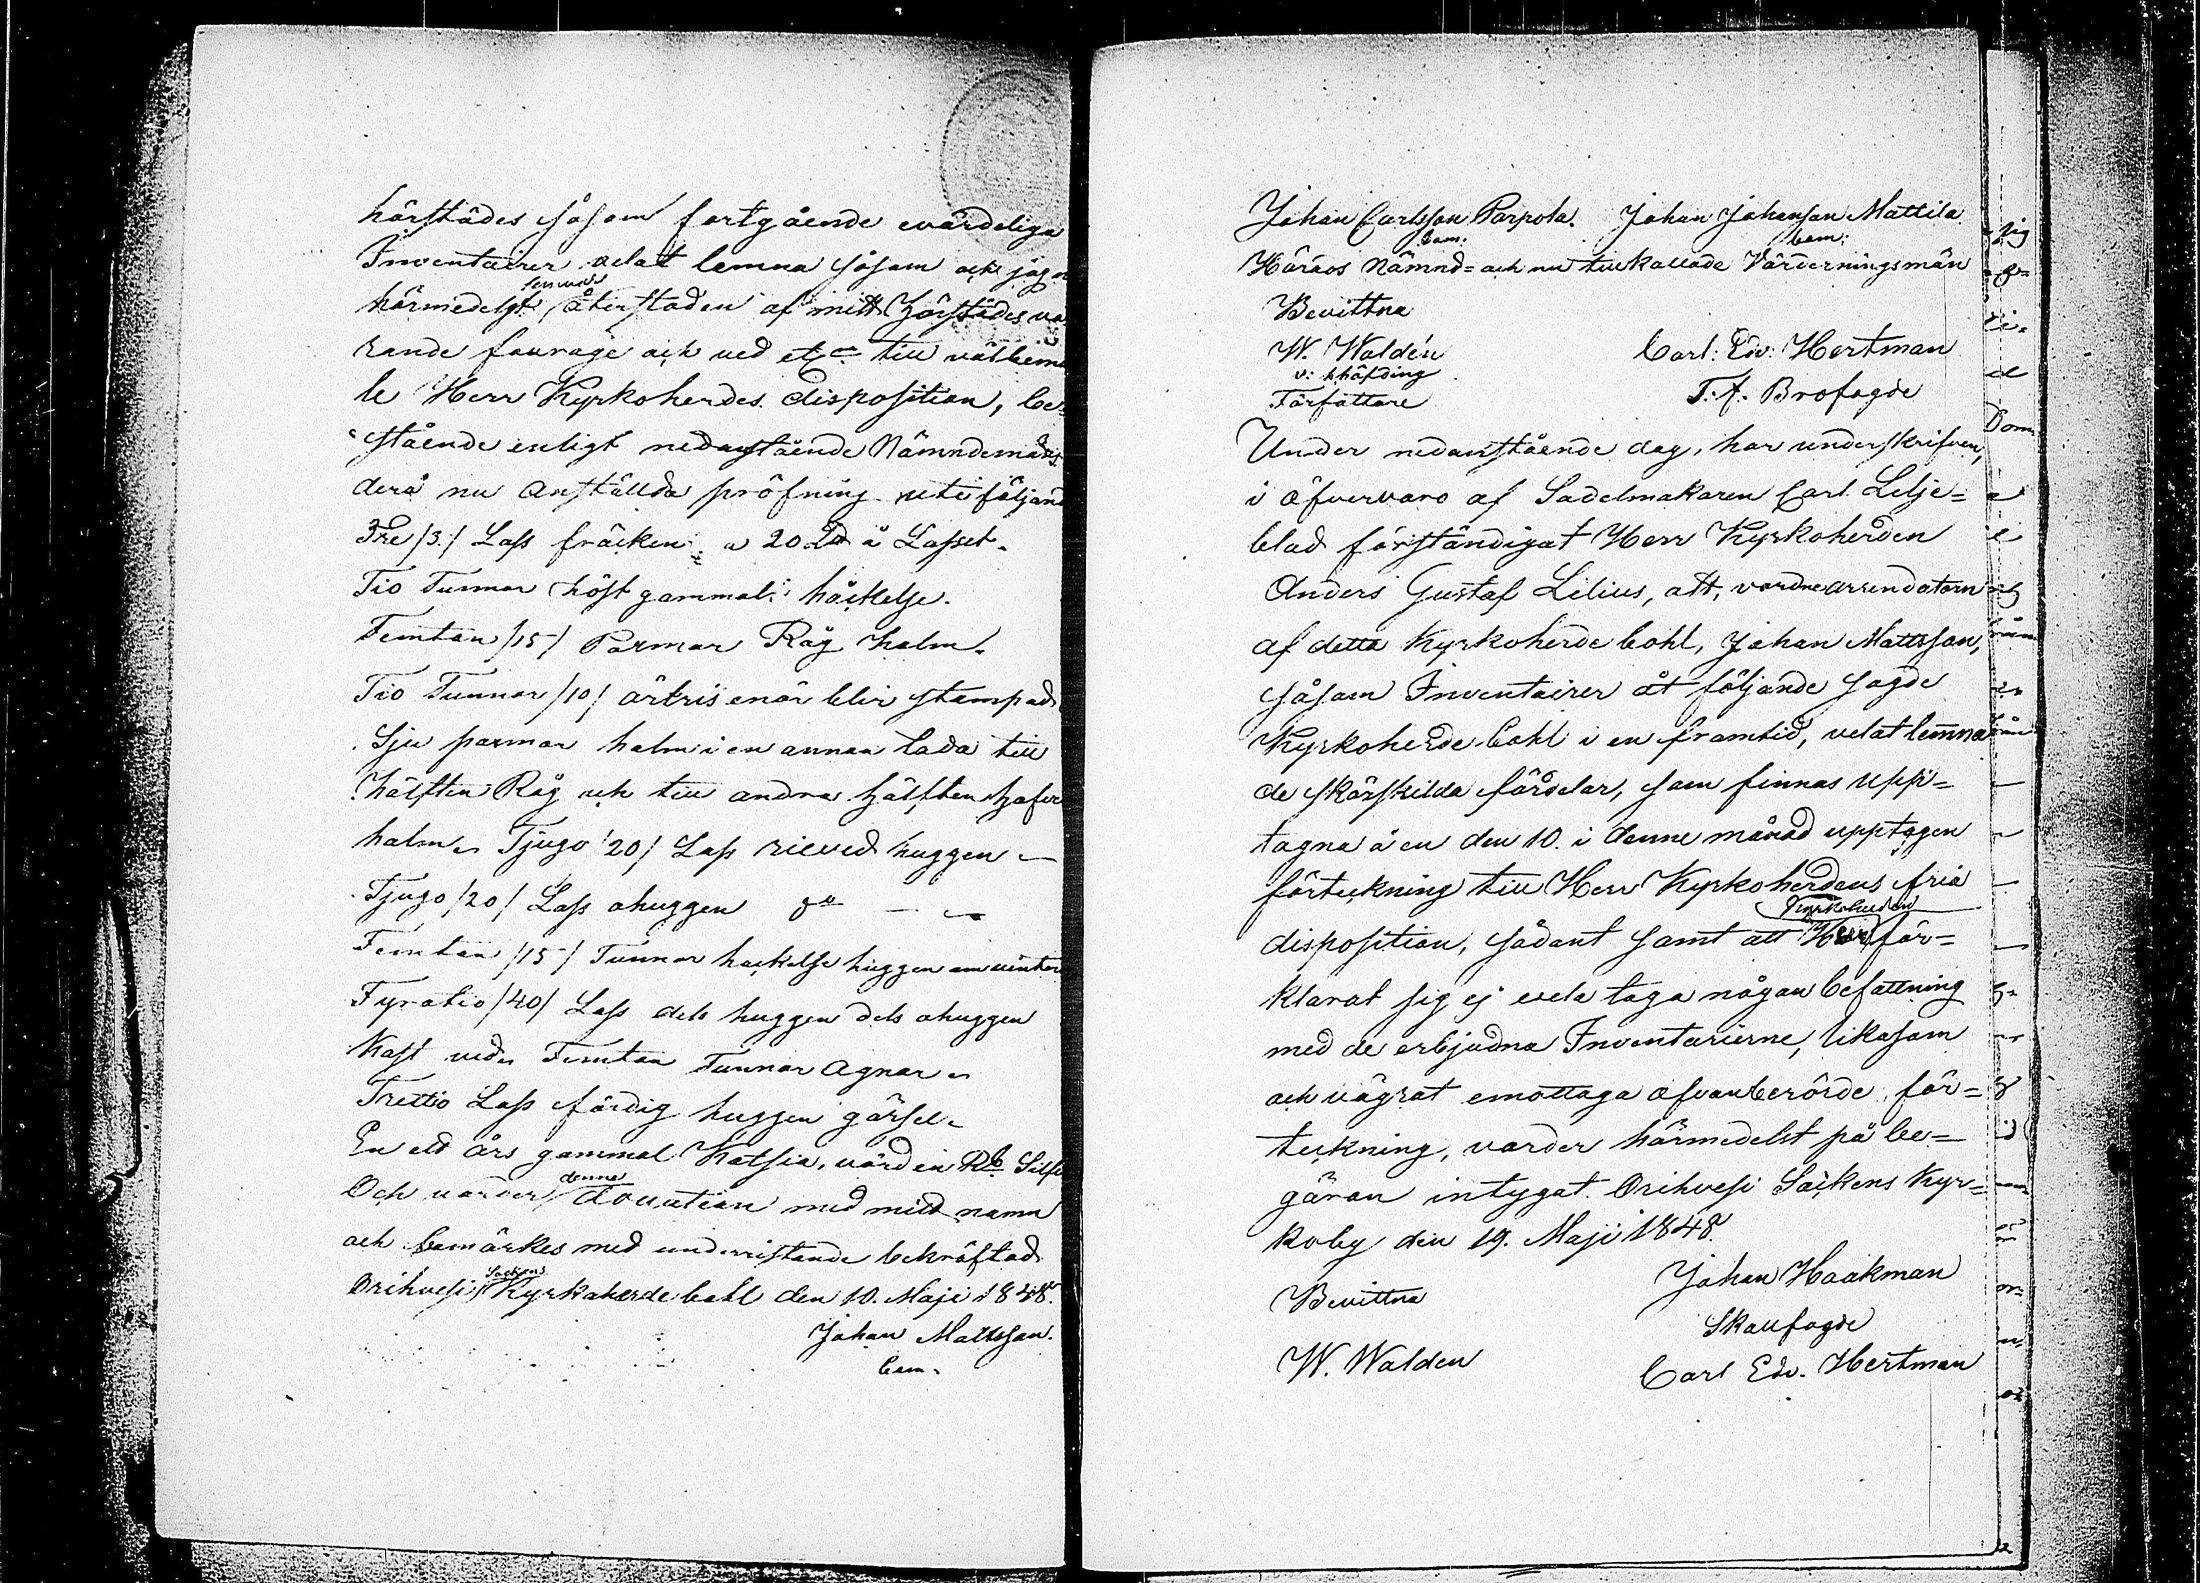 härstädes såsom fortgående evärdeliga
Inventairer velat lemna såsom ock jag
härmedelst lemnar återstaden af mitt härstädes va
rande fourage ock ved etc till välbem
le Herr Kyrkoherdes disposition, be-
stående enligt nedanstående Nämndemäns
derå nu anställda pröfning uti följand
Tre /3./ Lass fräken a 20 Ld å Lasset.
Tio Tunnor höst gammal håckelse.
Femtan /15/ Parmar Råg halm.
Tio Tunnor /10/ ärtris enär blir stampad
Sju parmar halm i en annan lada till
hälften Råg och till andra hälften hafer
halm. Tjugo /20/ Lass rieved huggen
Tjugo /20/ Lass ohuggen do
Femtan /15/ Tunnor hackelse huggen om vinter
Fyratio /40/ Lass dels huggen dels ohuggen
Kast ved. Femtan Tunnor Agnar
Trettio Lass färdig huggen gärsel.
En ett års gammal Katsia, värd en Rb Silf
Och varder denna donation med mitt namn
och bomärkes med underristande bekräftad
Orihvesi Sockens Kyrkoherde bohl den 10. Maji 1848.
Johan Mattsson.
bom.
Johan Carlsson Parpola. Johan Johansson Mattila
bom. bom:
Häraos Nämnd= och nu tillkallade Värderningsmän
Bevittna
W. Waldén Carl: Edv: Hertman
v: hhäfding
Författare T. f. Brofogde
Under nedanstående dag, har underskrifven,
i öfvervaro af Sadelmakaren Carl Lilje=
blad förständigat Herr Kyrkoherden
Anders Gustaf Lilius, att, vordne arrendatorn
af detta Kyrkoherde bohl, Johan Mattsson,
såsom Inventairer åt följande sagde
Kyrkoherde bohl i en framtid, velat lemna
de särskilda fördelar, som finnas upp=
tagna å en den 10. i denne månad upptagen
förteckning till Herr Kyrkoherdens fria
disposition, sådant samt att Herr Kyrkoherden för=
klarat sig ej vela taga någon befattning
med de erbjudna Inventarierne, likasom
och vägrat emottaga ofvanberörde för=
teckning, varder härmedelst på be=
gäran intygat. Orihvesi Sockens Kyr=
koby den 19. Maji 1848.
Bevittna Johan Haakman
Skoufogde
W. Walden Carl Edv. Hertman